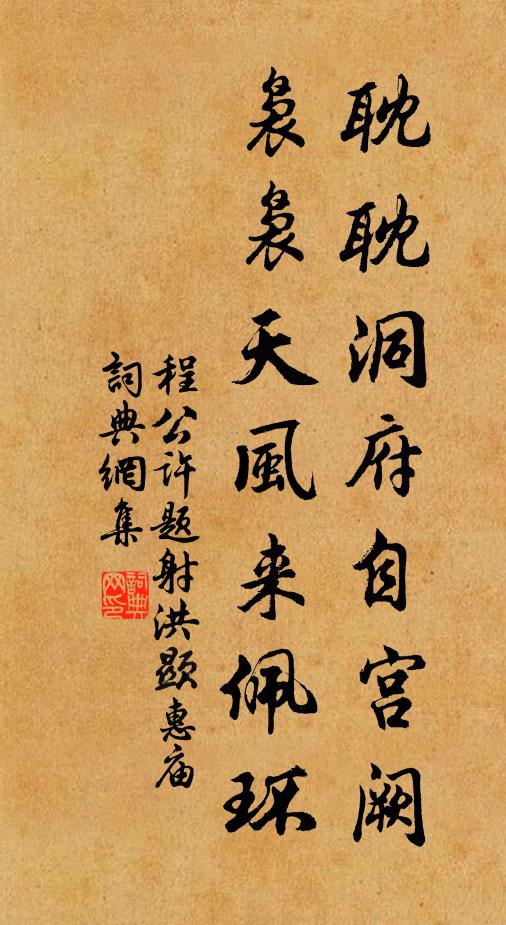 耽耽洞府自宫阙
袅袅天風来佩环
程公许题射洪顯惠庙
詞典網集
詞典网印